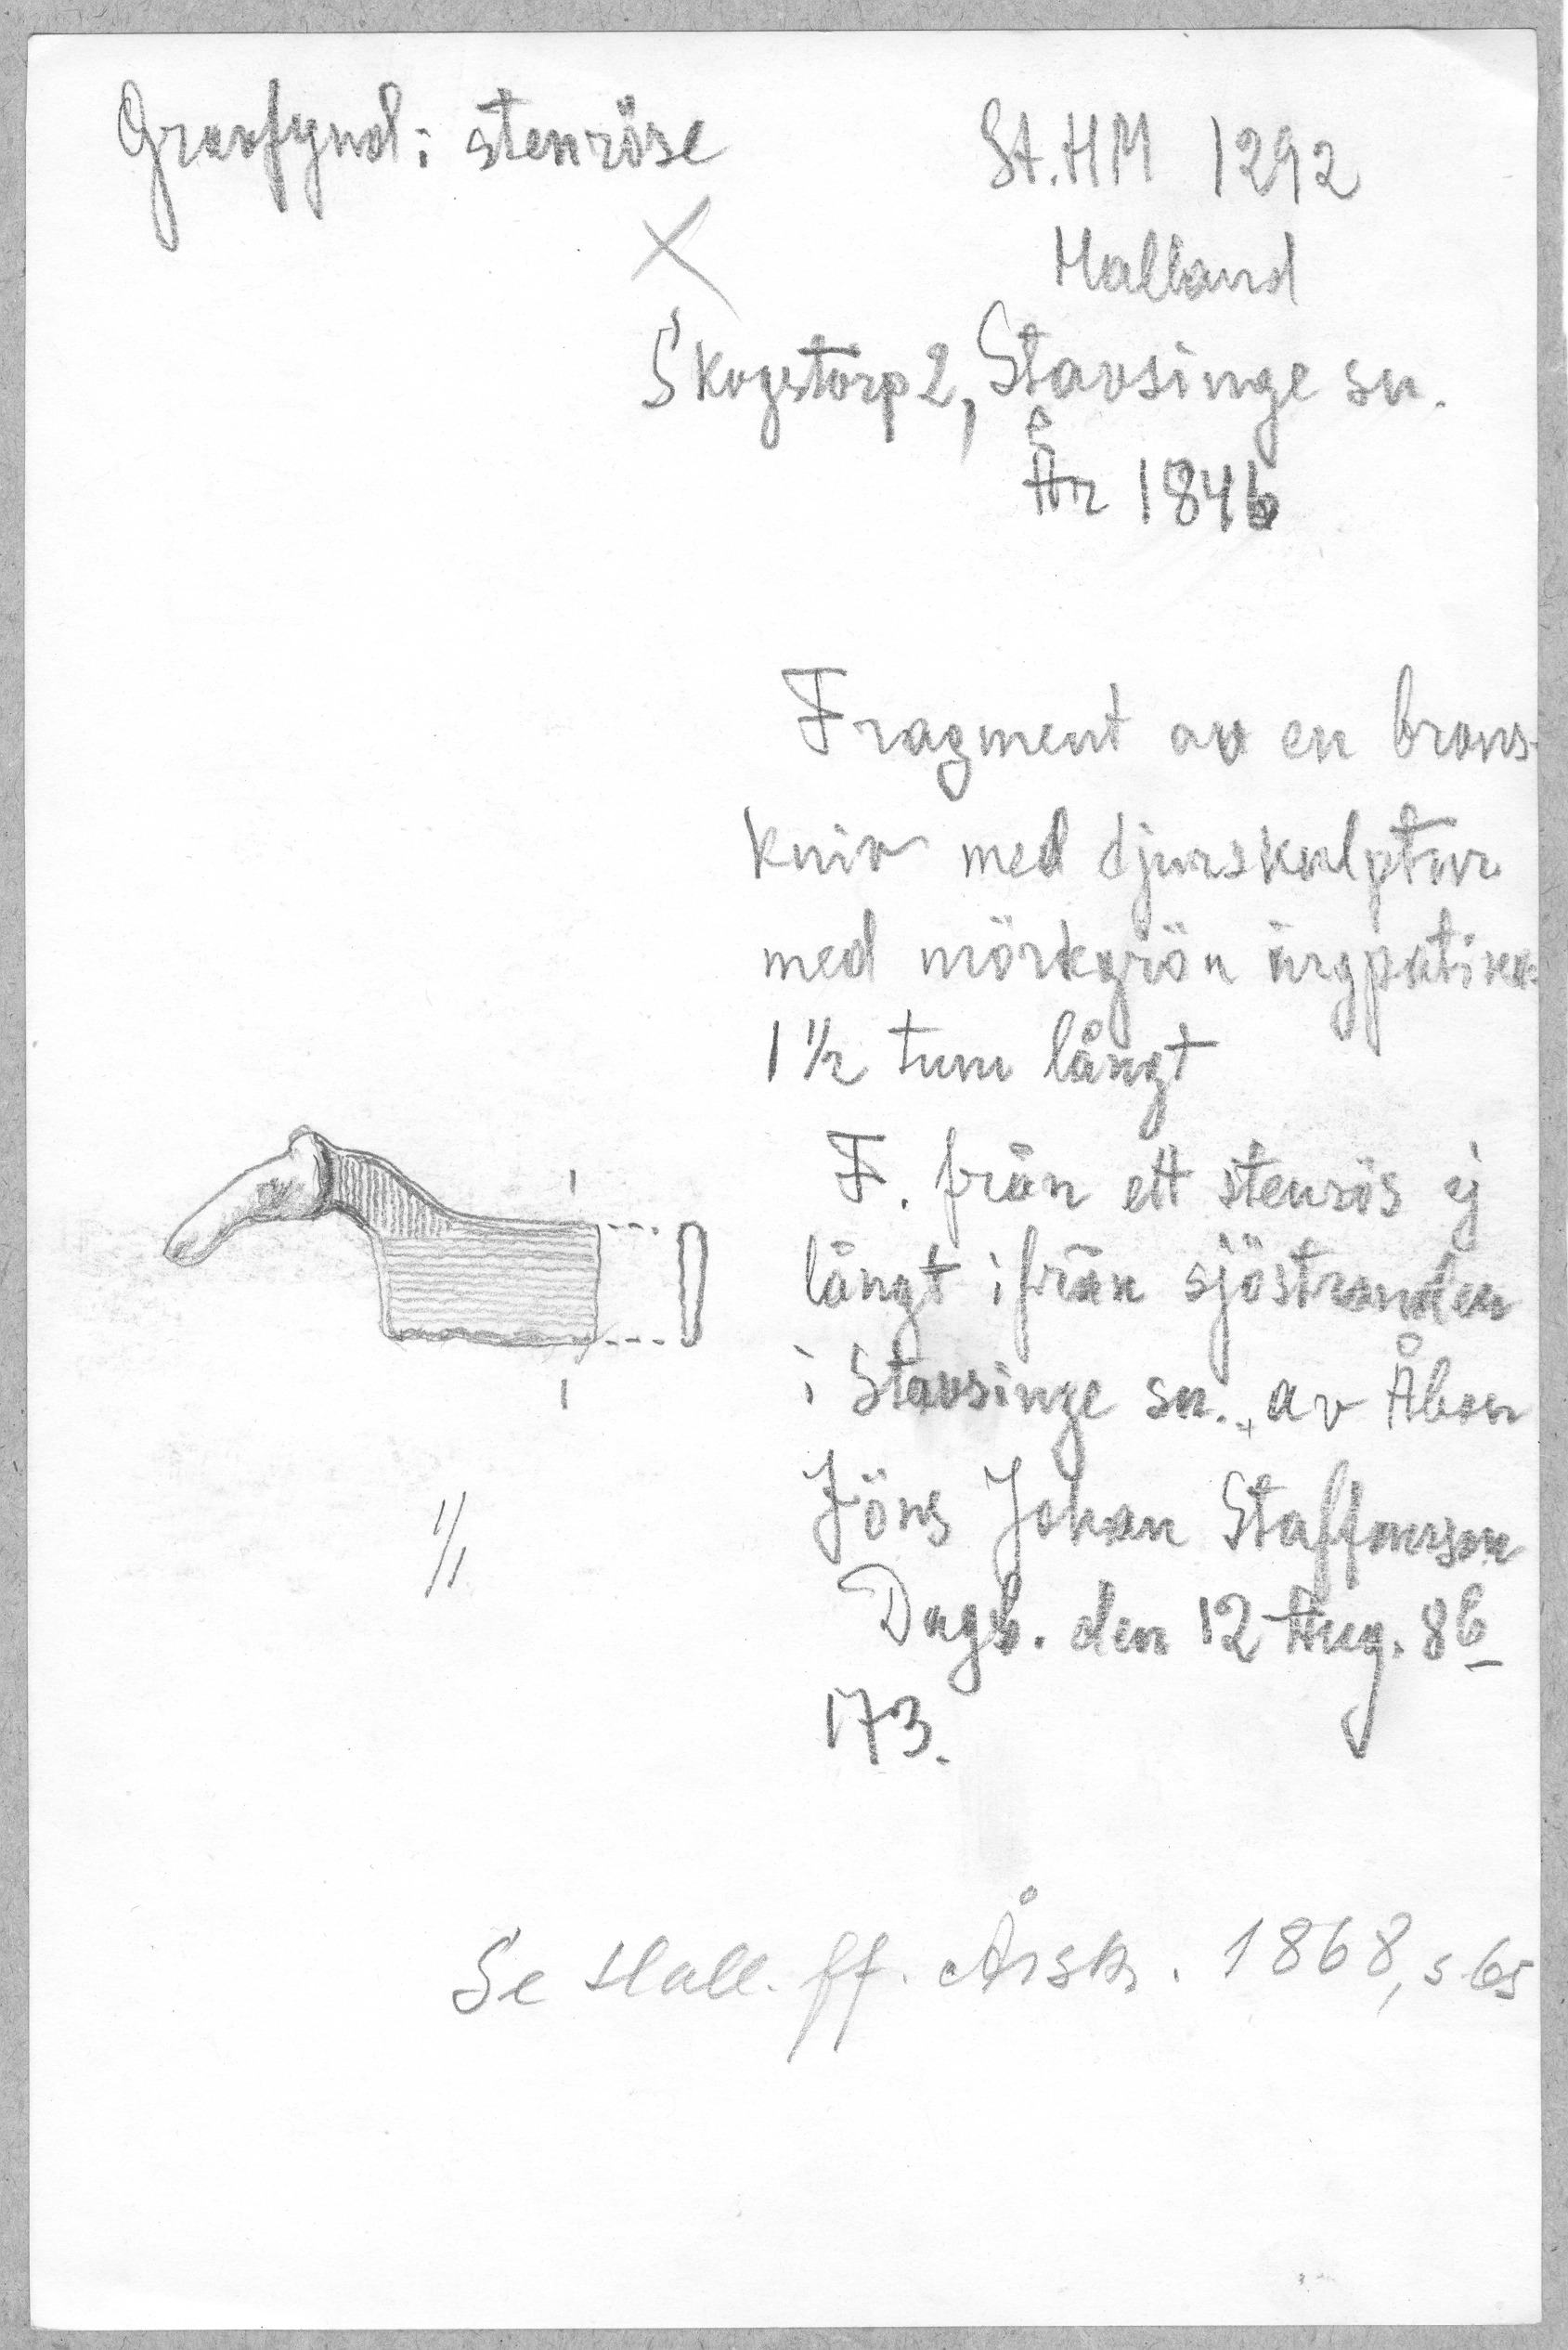 Gravfynd: stenröse
St.HM 1292
Halland
X
Skogstorp 2, Stavsinge sn.
År 1846
Fragment av en brons-
kniv med djurskulptur
med mörkgrön ärgpatina
1 1/2 tum långt
F. från ett stenrös ej
långt ifrån sjöstranden
i Stavsinge sn., av Åbon
Jöns Johan Staffansson
Dagb. den 12 Aug.
173.
1/1
Se Hall. ff. Årsk. 1868, s 65